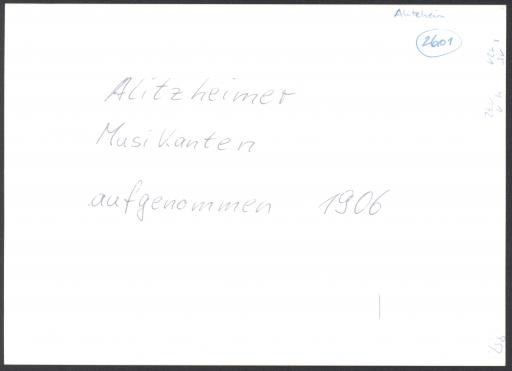 Alitzheim
2601
Alitzheimer
Musikanten
aufgenommen 1906